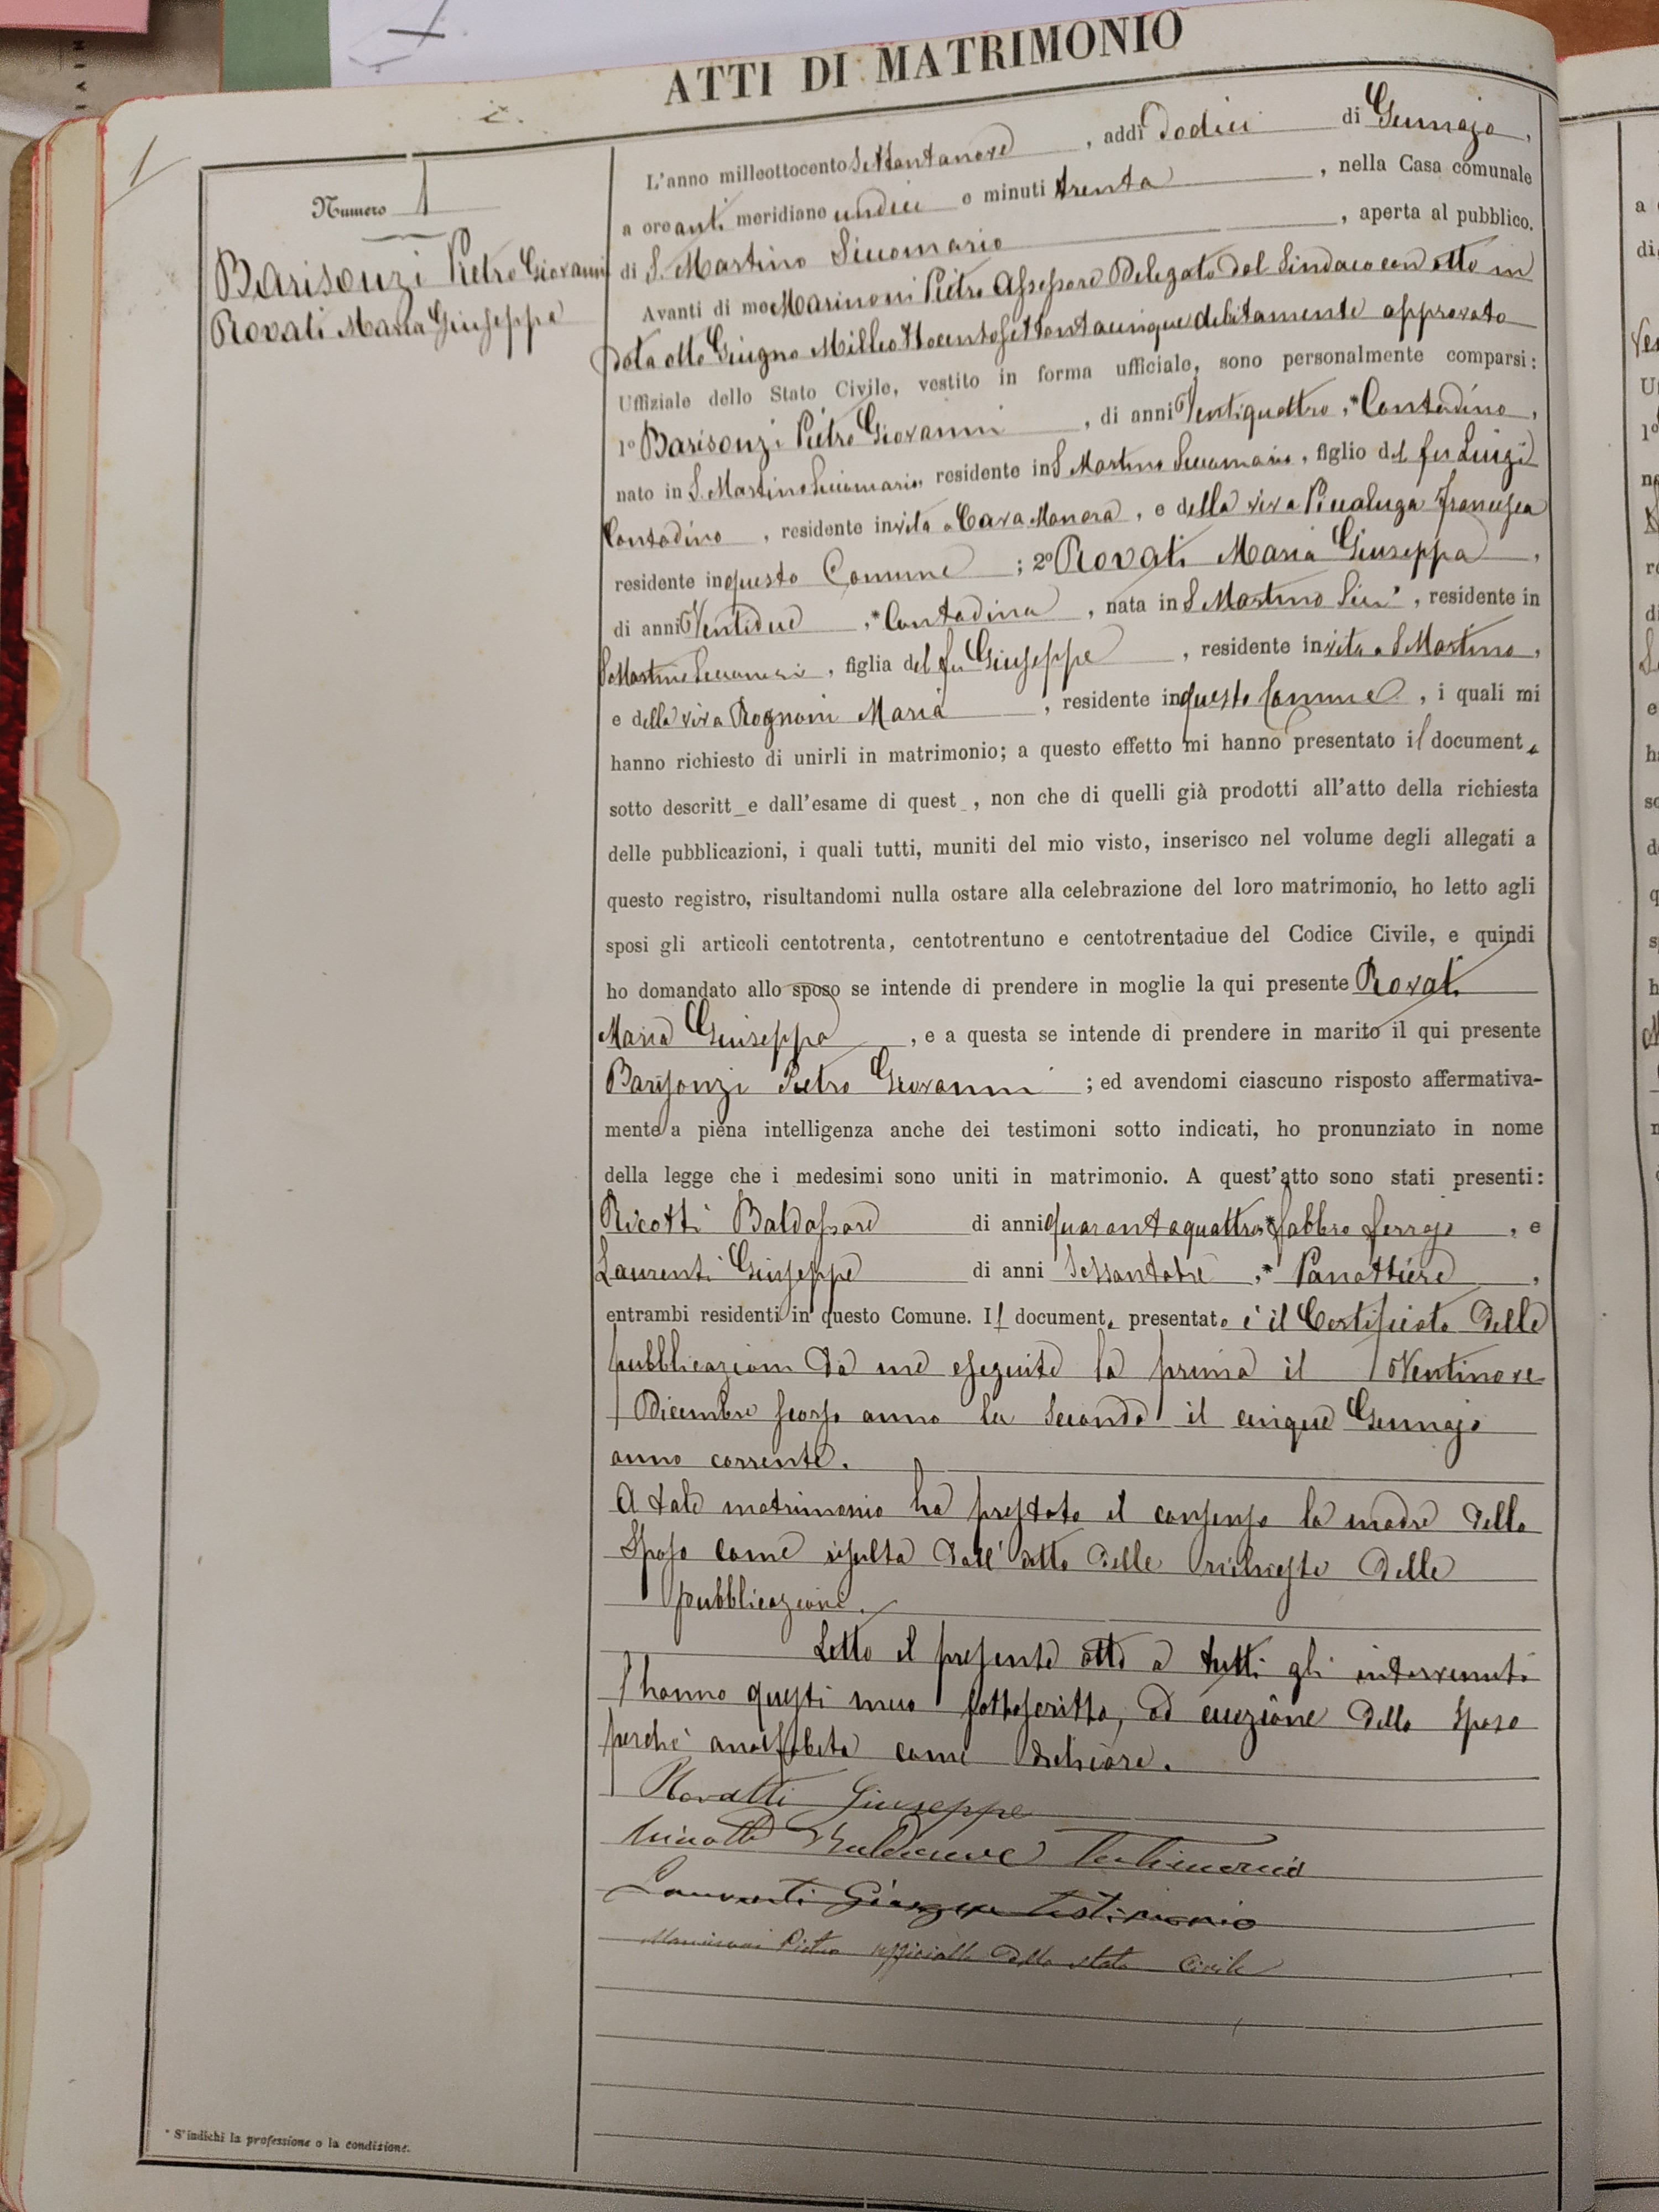 ATTI DI MATRIMONIO
1
Numero 1
Barisonzi Pietro Giovanni
Rovati Maria Giuseppa
L'anno milleottocento settantanove, addì dodici di Gennajo,
a ore anti meridiane undici e minuti trenta, nella Casa comunale
di S. Martino Siccomario, aperta al pubblico.
Avanti di me Marinoni Pietro Assessore Delegato dal Sindaco con atto in
data otto Giugno Milleottocentosettantacinque debitamente approvato
Uffiziale dello Stato Civile, vestito in forma ufficiale, sono personalmente comparsi:
1º Barisonzi Pietro Giovanni, di anni Ventiquattro, * Contadino,
nato in S. Martino Siccomario, residente in S. Martino Siccomario, figlio del fu Luigi
Contadino, residente in vita a Cava Manara, e della viva Piccaluga Francesca
residente in questo Comune; 2º Rovati Maria Giuseppa,
di anni Ventidue, * Contadina, nata in S. Martino Sicc.º, residente in
S. Martino Siccomario, figlia del fu Giuseppe, residente in vita a S. Martino,
e della viva Rognoni Maria, residente in questo Comune, i quali mi
hanno richiesto di unirli in matrimonio; a questo effetto mi hanno presentato il documento
sotto descritt_ e dall'esame di quest_, non che di quelli già prodotti all'atto della richiesta
delle pubblicazioni, i quali tutti, muniti del mio visto, inserisco nel volume degli allegati a
questo registro, risultandomi nulla ostare alla celebrazione del loro matrimonio, ho letto agli
sposi gli articoli centotrenta, centotrentuno e centotrentadue del Codice Civile, e quindi
ho domandato allo sposo se intende di prendere in moglie la qui presente Rovati
Maria Giuseppa, e a questa se intende di prendere in marito il qui presente
Barisonzi Pietro Giovanni; ed avendomi ciascuno risposto affermativa-
mente a piena intelligenza anche dei testimoni sotto indicati, ho pronunziato in nome
della legge che i medesimi sono uniti in matrimonio. A quest'atto sono stati presenti:
Ricotti Baldassare di anni quarantaquattro, * fabbro ferrajo, e
Laurenti Giuseppe di anni sessantatre, * Panattiere,
entrambi residenti in questo Comune. Il documento presentato è il Certificato delle
pubblicazioni da me eseguite la prima il Ventinove
Dicembre scorso anno la seconda il cinque Gennajo
anno corrente.
A tale matrimonio ha prestato il consenso la madre dello
Sposo come risulta dall'atto delle richieste delle
pubblicazioni.
Letto il presente atto a tutti gli intervenuti
l'hanno questi meco sottoscritto, ad eccezione dello sposo
perchè analfabeta come dichiara.
Rovatti Giuseppe
Baldasare Testimonio
Laurenti Giuseppe testimonio
Marinoni Pietro ufficialle dello stato Civile
* S'indichi la professione o la condizione.